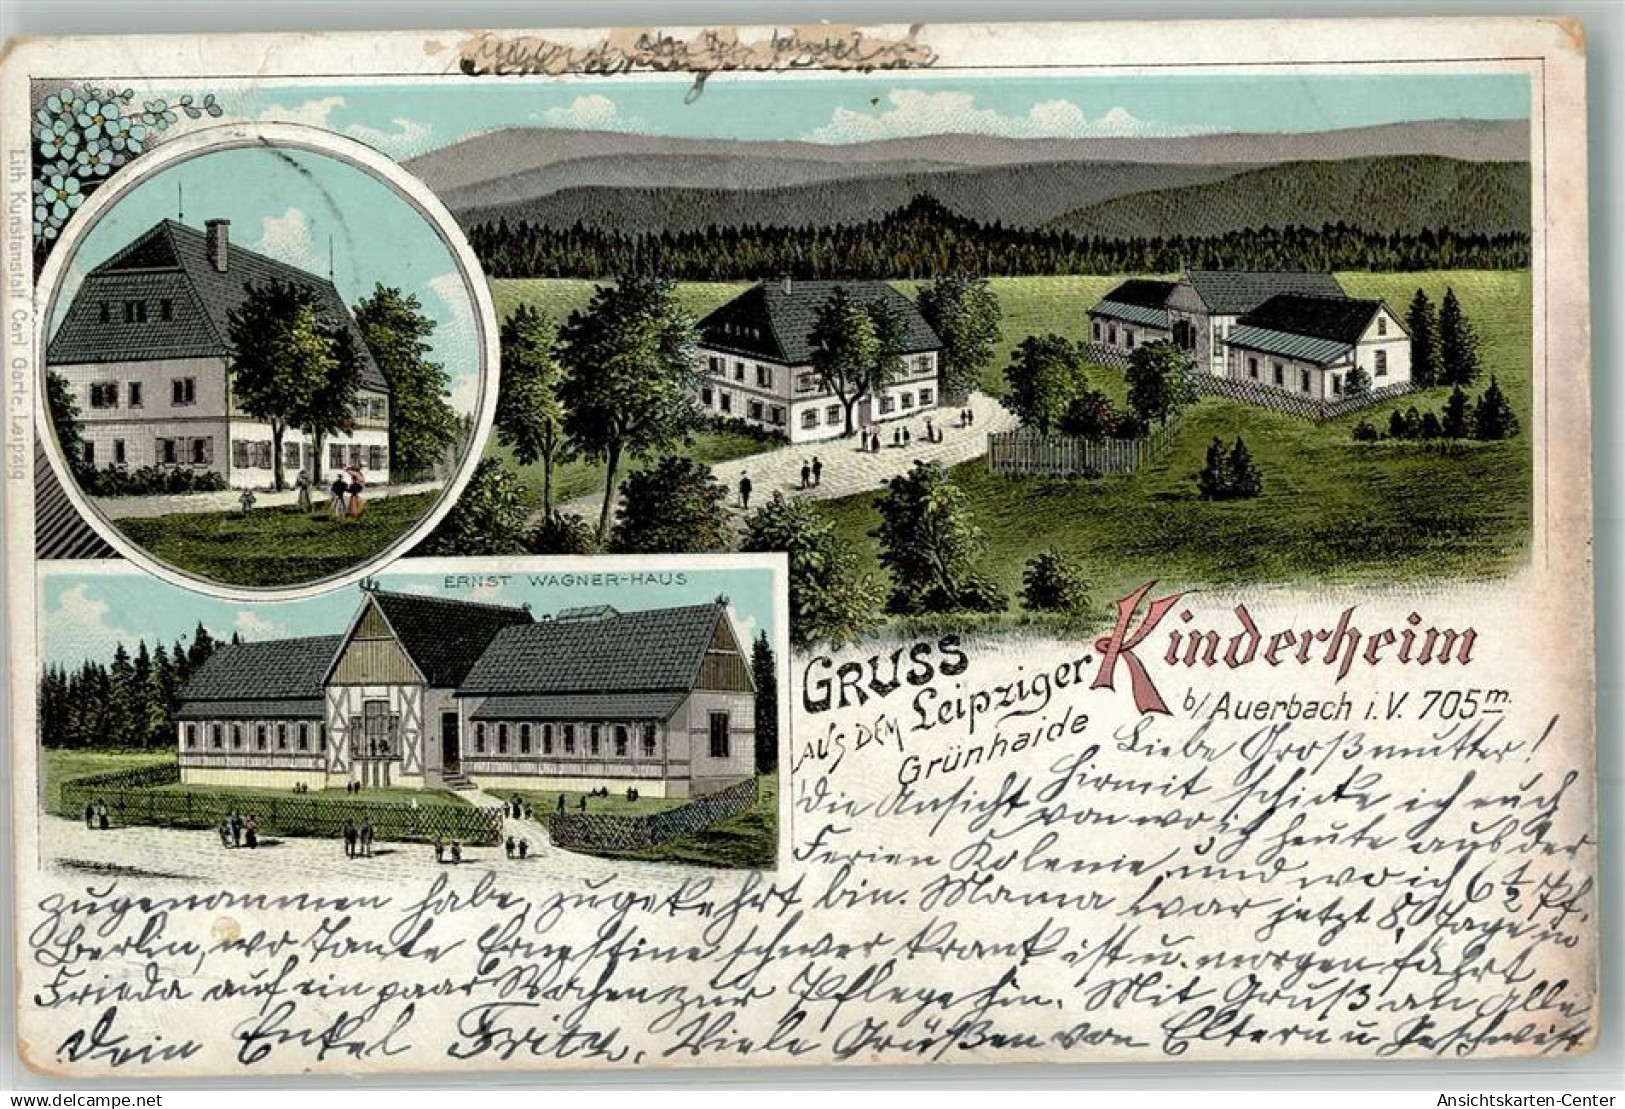 ERNST WAGNER-HAUS
Lith. Kunstanstalt Carl Garte, Leipzig.
GRUSS
AUS DEM Leipziger Kinderheim
Grünhaide b/ Auerbach i. V. 705 m.
Liebe Großmutter!
Hirmit schicke ich euch
die Ansicht von wo ich heute aus der
Ferien Kolonie und wo ich 6½ Pf.
zugenommen habe, zugekehrt bin. Mama war jetzt 8 Tage in
Berlin, wo Tante Ernestine schwer krank ist u. morgen fährt
Frieda auf ein paar Wochen zur Pflege hin. Mit Gruß an alle
Dein Enkel Fritz. Viele Grüßen von Eltern u Geschwist
Ansichtskarten-Center